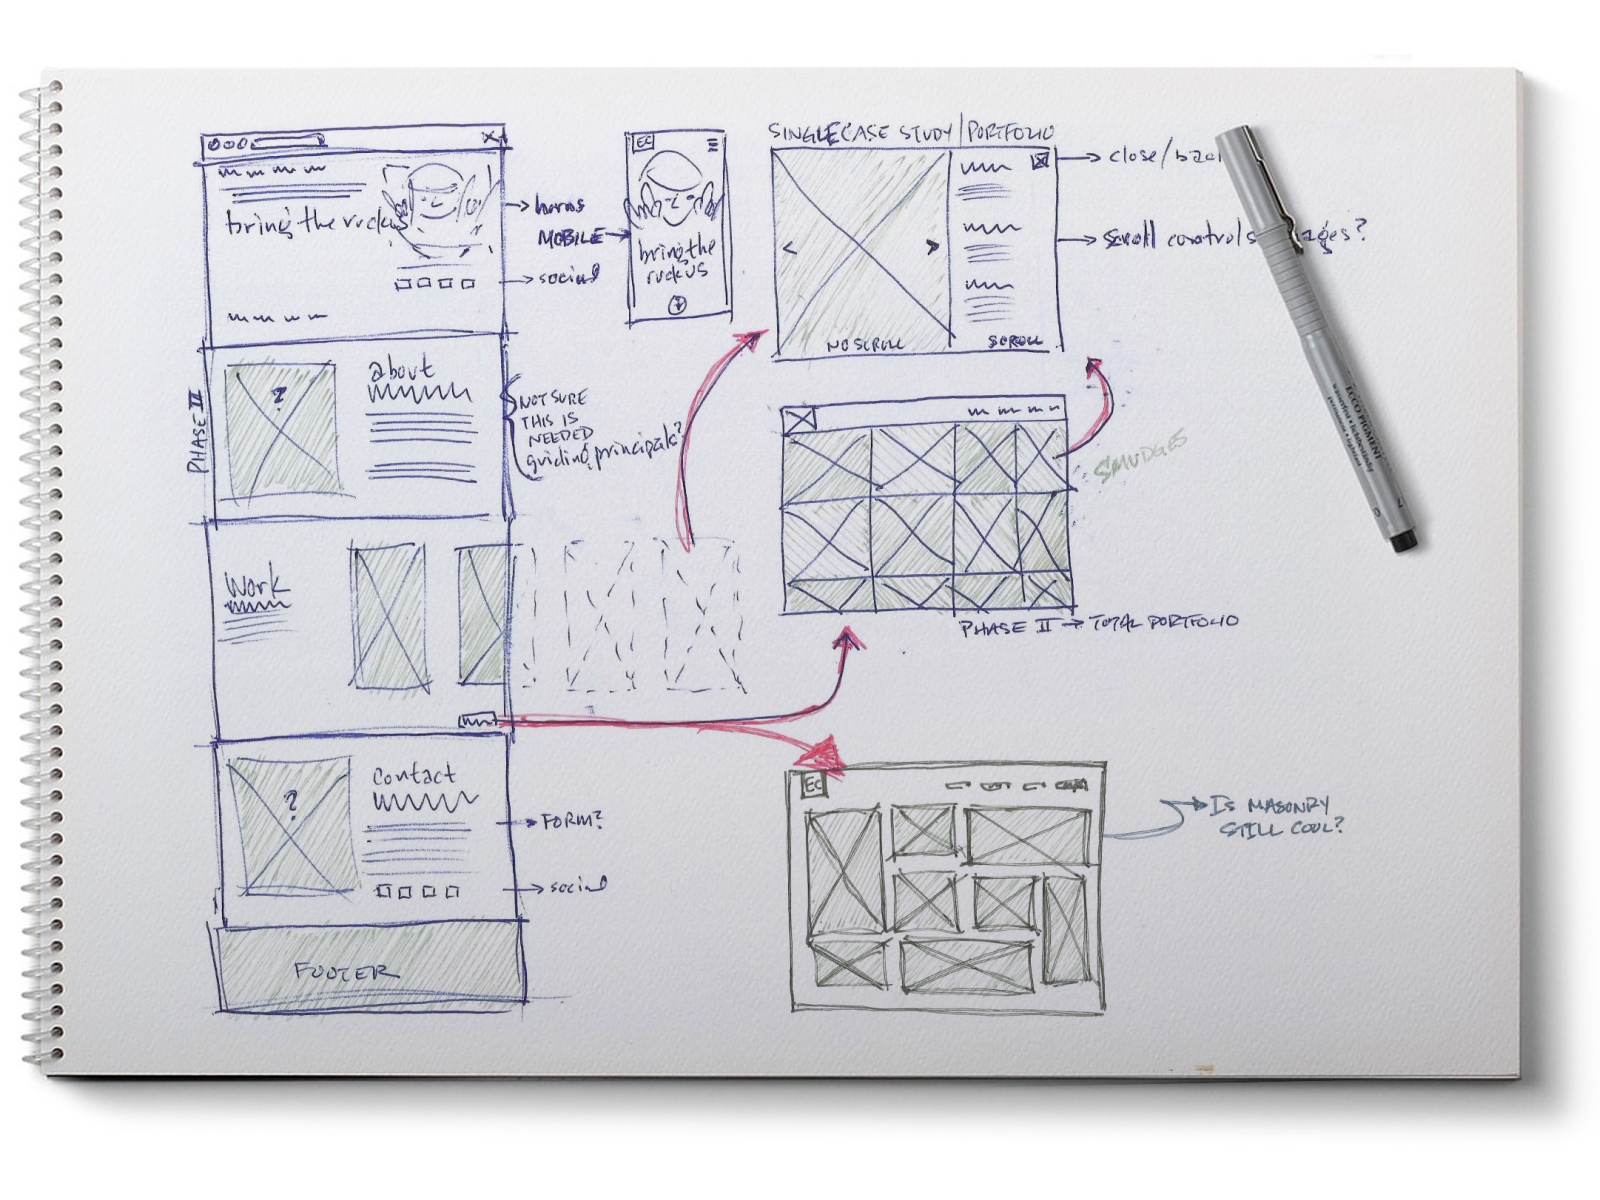 bring the ruckus
horns
MOBILE
social
EC
bring the
ruckus
SINGLE CASE STUDY / PORTFOLIO
close/bac
scroll controls
ages?
NO SCROLL
SCROLL
PHASE III
?
about
NOT SURE
THIS IS
NEEDED
guiding principals?
SMUDGES
Work
PHASE II → TOTAL PORTFOLIO
?
contact
FORM?
social
FOOTER
EC
IS MASONRY
STILL COOL?
ECCO PIGMENT